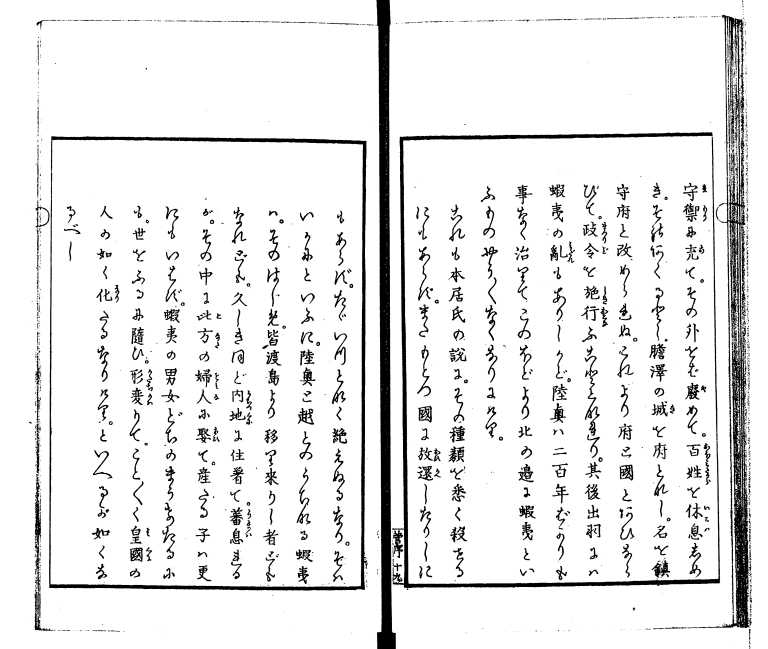 守禦に充て。その外をば廢めて。百姓を休息しめ
き。その
膽澤の城を府とし。名を鎮
守府と改めらる。これより府と國とあひならびて。
びて。政令を施行ふ
其後出羽には
蝦夷の亂もありしかど。陸奥は二百年ばかりも
事なく治りてこのほどより北の邊に蝦夷とい
ふものやうやくなくなりにけり。
これも本居氏の説に。その種類を悉く殺せる
にもあらず。またもとの國に放還したりしに
もあらず。たゞいつとなく絶えぬるなり。そは
いかにといふに。陸奥と越とのうちなる蝦夷
は。そのはじめ。皆渡島より移り来りし者ども
なれども。久しきほど内地に住着て蕃息れる
が。その中に此方の婦人に娶て。産たる子は更
にもいはず。蝦夷の男女どちのまうけたるに
も。世をふるに隨ひ。形變りて。ことごとく皇國の
人の如く化たるなりけり。といへるが如くな
るべし
曽序 十九